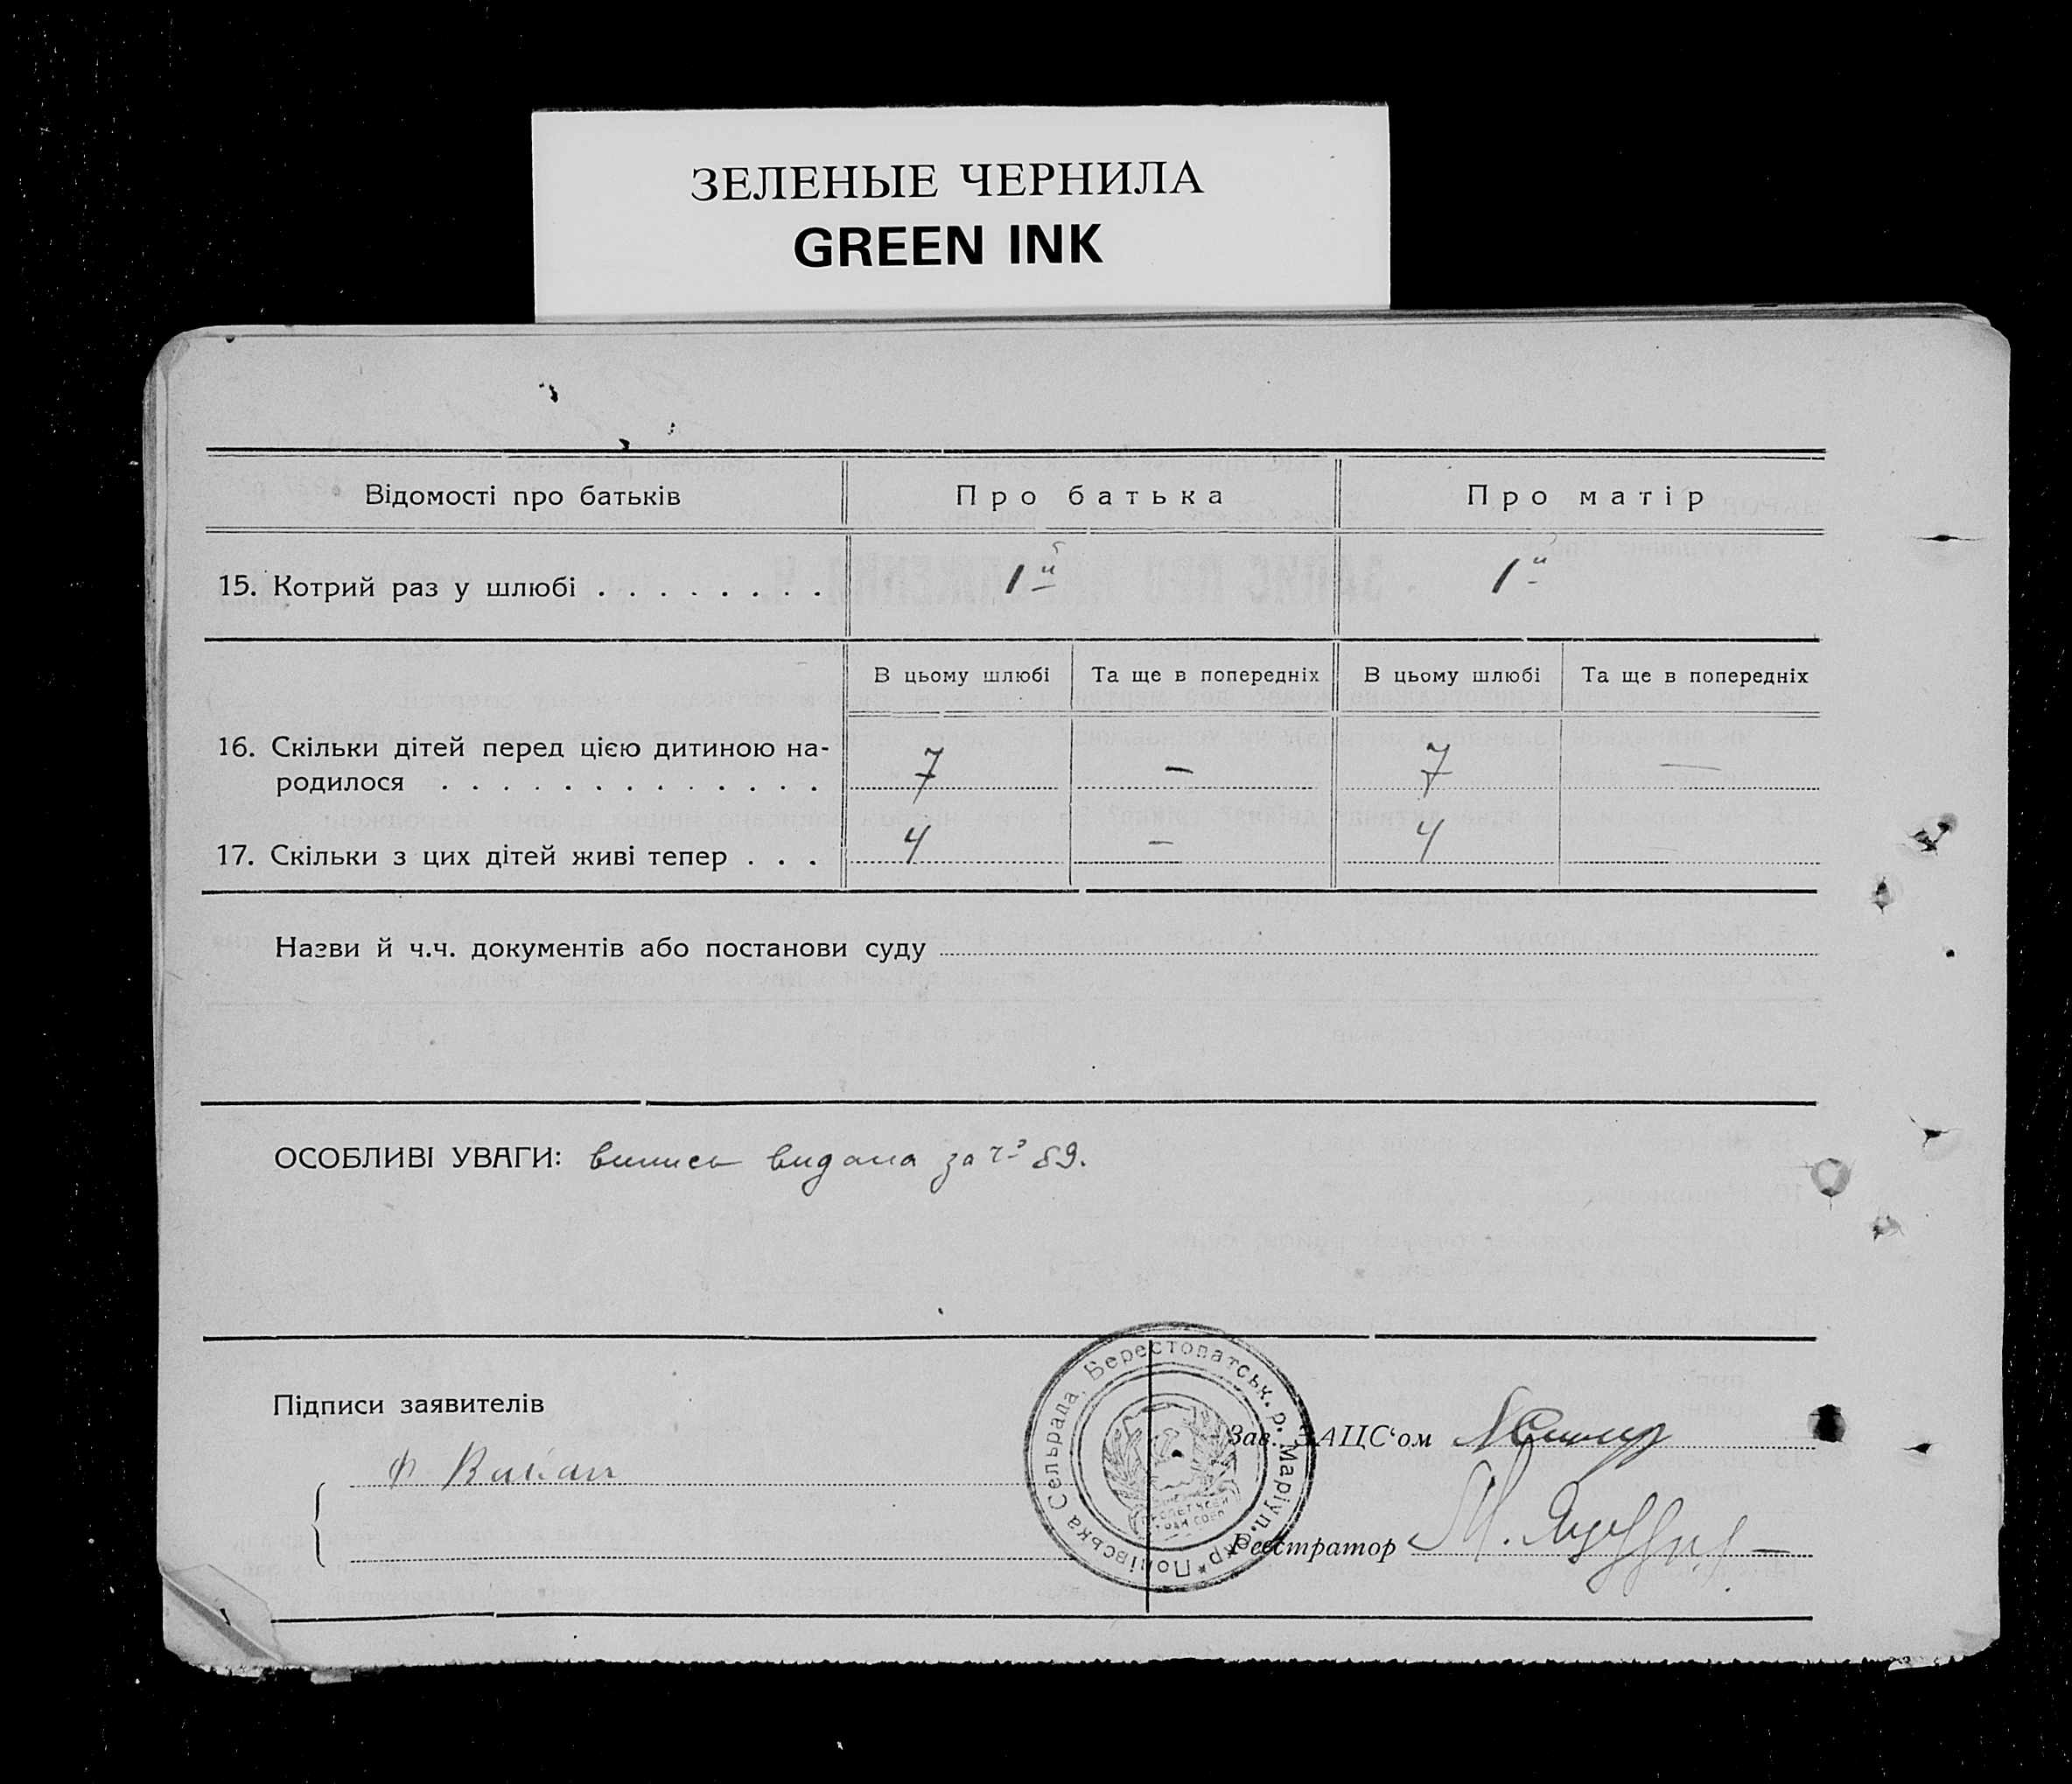 ЗЕЛЕНЫЕ ЧЕРНИЛА
GREEN INK
Відомості про батьків Про батька Про матір
15. Котрий раз у шлюбі . . . . . . . . . 1й 1й
В цьому шлюбі Та ще в попередніх В цьому шлюбі Та ще в попередніх
16. Скільки дітей перед цією дитиною на-
родилося . . . . . . . . . . . . . 7 — 7 —
17. Скільки з цих дітей живі тепер . . . 4 — 4 —
Назви й ч.ч. документів або постанови суду
ОСОБЛИВІ УВАГИ: випись видана за ч. 59.
Підписи заявителів
Зав. ЗАЦС‘ом
Ф
Реєстратор М.
Сельрада, Берестоватськ. р. Маріуп. окр * Попівська